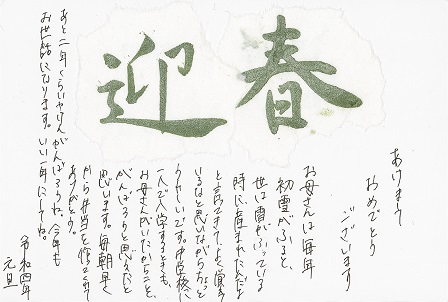 迎春
あけまして
おめでとう
ございます
お母さんは毎年
初雪がふると、
世は雪がふっている
時に産まれたんだよ
と言ってきてよく覚えて
いるなと思いながらちょっと
うれしいです。中学校に
一人で入学するときも、
お母さんがいたからこそ、
がんばろうと思えたと
思います。毎朝早く
から弁当を作ってくれて
ありがとう。
あと二年くらいやけんがんばろうね。今年も
お世話になります。いい一年にしてね。
令和四年
元旦